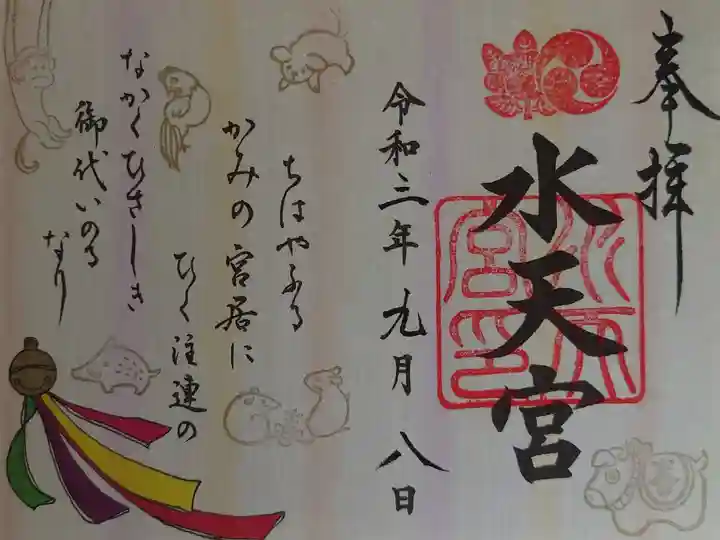 奉拝
水天宮
水天宮印
令和三年九月八日
ちはやふる
かみの宮居に
ひく注連の
なかくひさしき
御代いのる
なり